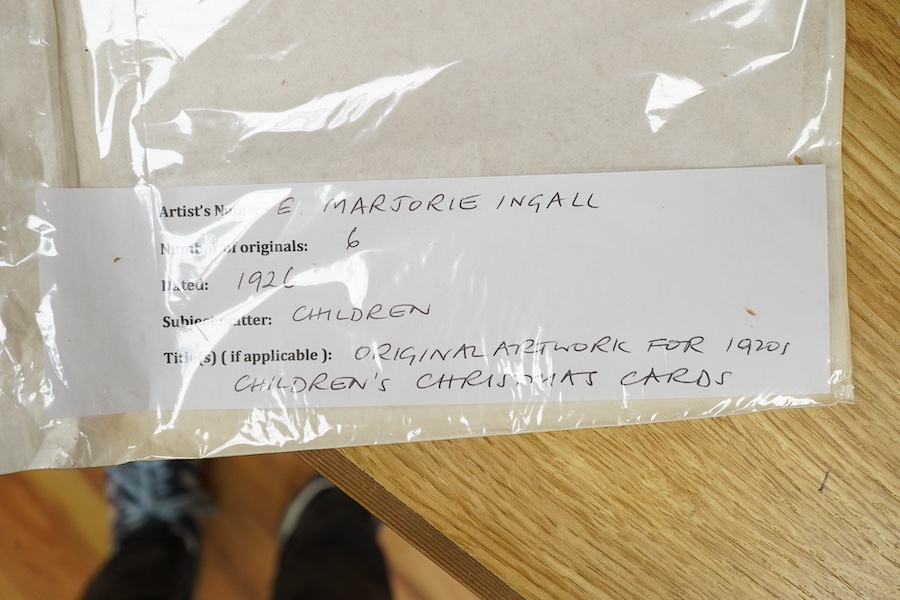 Artist's Name: E. MARJORIE INGALL
Number of originals: 6
Dated: 1926
Subject matter: CHILDREN
Title(s) ( if applicable ): ORIGINAL ARTWORK FOR 1920s
CHILDREN'S CHRISTMAS CARDS